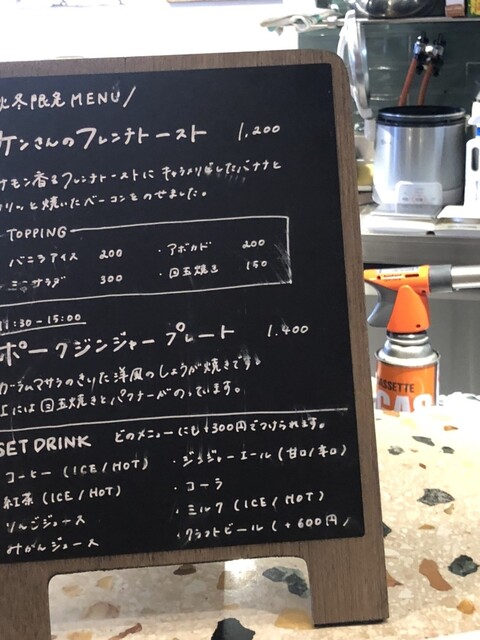 秋冬限定 MENU/
ケンさんのフレンチトースト 1,200
ナモン香るフレンチトーストに キャラメリゼしたバナナと
カリッと焼いたベーコンをのせました。
TOPPING
バニラアイス 200
・アボカド 200
ミニサラダ 300
・目玉焼き 150
11:30-15:00
ポークジンジャー プレート 1,400
ガラムマサラのきいた 洋風のしょうが焼きです。
上には目玉焼きとパクチーがのっています。
SET DRINK どのメニューにも+300円でつけられます。
コーヒー (ICE/HOT)
・ジンジャーエール (甘口/辛口)
紅茶 (ICE/HOT)
・コーラ
りんごジュース
・ミルク (ICE/HOT)
みかんジュース
・クラフトビール (+600円)
CASSETTE
GAS